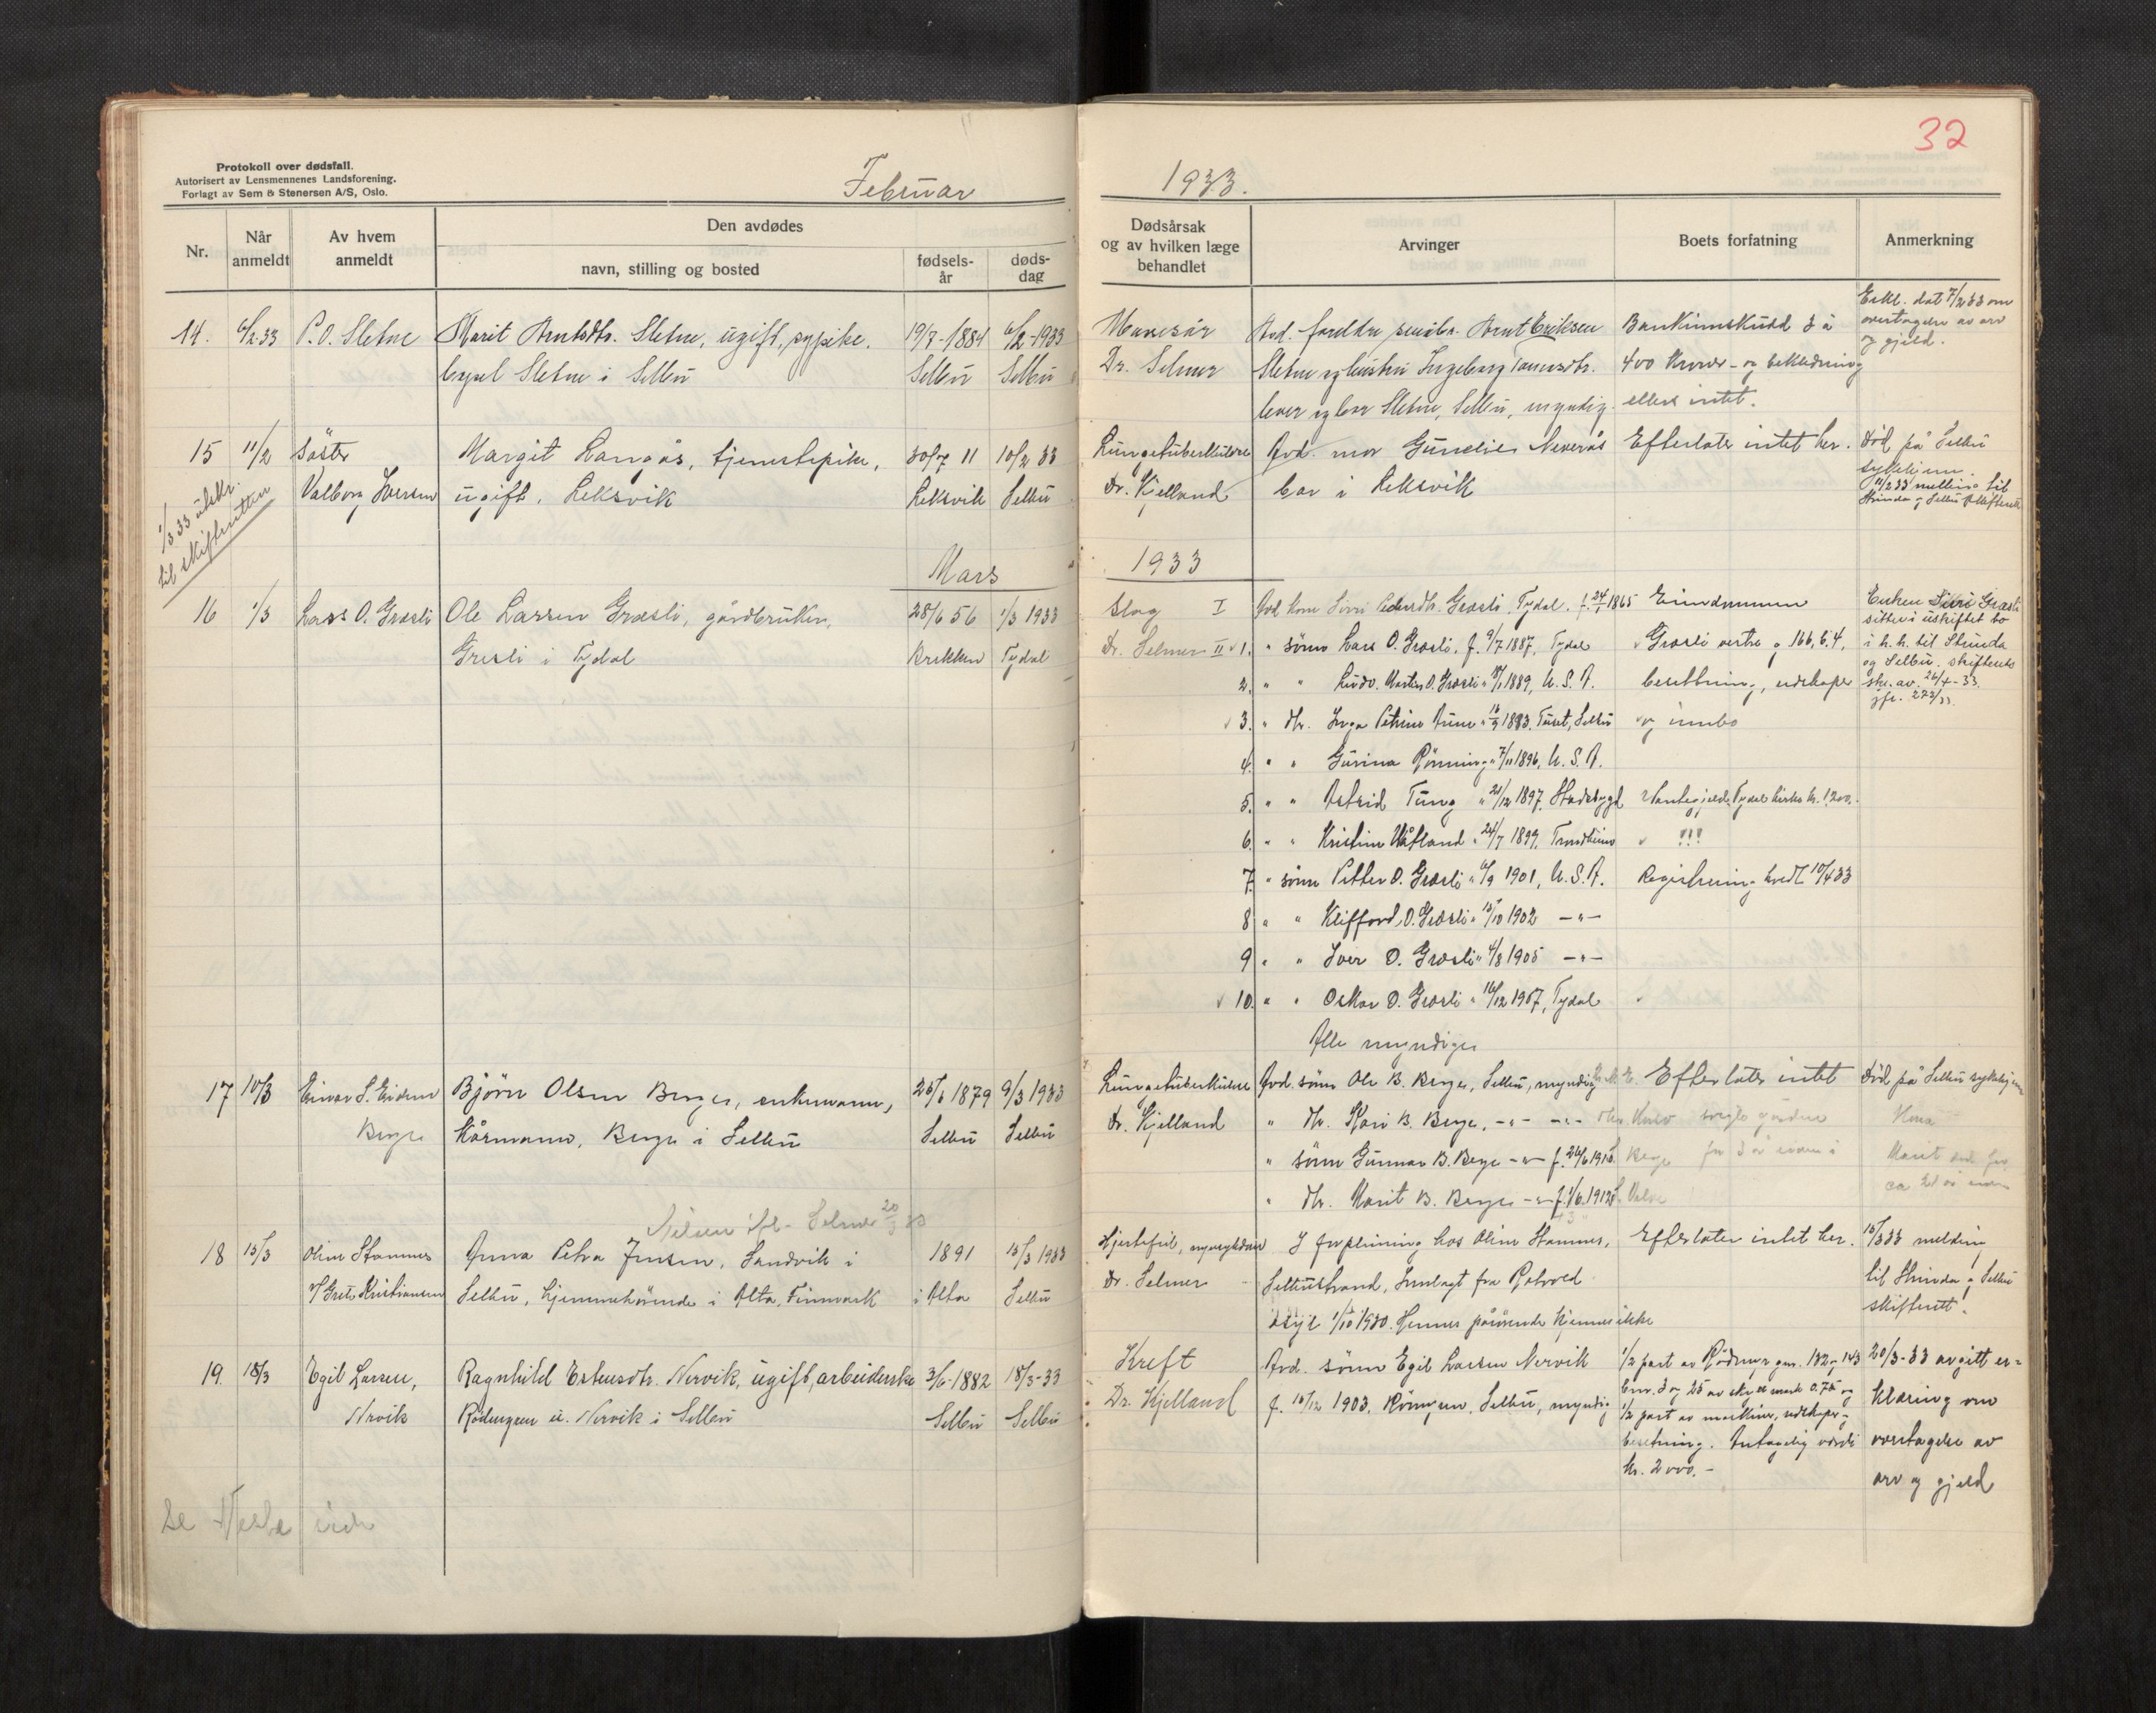 Protokoll over dødsfall.
Autorisert av Lensmennenes Landsforening.
Forlagt av Sem & Stenersen A/S, Oslo.
Februar
Nr.
Når anmeldt
Av hvem anmeldt
Den avdødes
navn, stilling og bosted
fødsels-år
døds-dag
14. 6/2-33 P.O. Sletne Marit Arntsdtr. Sletne, ugift, sypike. 19/7-1884 6/2-1933
bopel Sletne i Selbu Selbu Selbu
15 11/2 Søster Margit Langås, tjenestepike, 30/7 11 10/2 33
Valborg Iversen ugift. Leksvik Leksvik Selbu
1/3 33 utskr.
til skifteretten
Mars
16 1/3 Lars O. Græsli Ole Larsen Græsli, gårdbruker, 28/6 56 1/3 1933
Gresli i Tydal Brekken Tydal
17 10/3 Einar S. Eidem Bjørn Olsen Berge, enkemann, 25/6 1879 9/3 1933
Berge Kårmann, Berge i Selbu Selbu Selbu
Selmer 20/3 33
18 15/3 Oline Stamnes Anna Petra Jensen, Sandvik i 1891 15/3 1933
v/ Grete Kristiansen Selbu, hjemmehörende i Alta, Finnmark i Alta Selbu
19. 18/3 Egil Larsen, Ragnhild Estensdtr. Nervik, ugift, arbeiderske 3/6-1882 18/3-33
Nervik u. Nervik i Selbu Selbu Selbu
Se Neste side
32
1933.
Dødsårsak og av hvilken læge behandlet
Arvinger
Boets forfatning
Anmerkning
Mavesår Avd. foreldre Arnt Eriksen Bankinnskudd 3 à
Dr. Selmer Sletne og hustru Ingeborg 400 Kroner - og bekledning
lever og bor Sletne, Selbu, myndig. ellers intet.
Erkl. dat 7/2 33 om
overtagelse av arv
og gjeld.
Lungetuberkulose Avd. mor Neverås Efterlater intet her.
Dr. Kjelland bor i Leksvik
Død på Selbu
sykehjem.
11/2 33 melding til
Strinda og Selbu skifterett
1933
Slag I Avd. kone Siri Pedersdtr. Græsli, Tydal. f. 24/1 1865 Eiendommen
Dr. Selmer II 1. " sønn Lars O. Græsli, f. 9/7 1887, Tydal Græsli vestre g 166, b. 4,
2. " " Ludv. Martin O. Græsli " 1889, U.S.A. besetning, redskaper
3. " dtr. Inga Petrine Aune " 1893. Tuset, Selbu og innbo
4. " " Gurina Rønning " 7/11 1896, U.S.A.
5. " " Astrid Tung " 21/12 1897, Stadsbygd Pantegjeld Tydal kirke kr. 1200.-
6. " " Kristine " 24/7 1899. Trondheim
7. " sønn Petter O. Græsli " 6/9 1901, U.S.A. Registrering hvedt 10/4 33
8 " " Klifford O. Græsli " 15/10 1902 -"-
9 " " Iver O. Græsli " 4/8 1905 -"-
10. " " Oskar O. Græsli " 16/12 1907, Tydal
Alle myndige
Enken Siri Græsli
sitter i uskiftet bo
i h. h. til Strinda
og Selbu skifteretts
skr. av. 26/4-33
jfr. 273/33
Lungetuberkulose Avd. sønn Ole B. Berge, Selbu, myndig Efterlater intet Død på Selbu sykehjem
Dr. Kjelland " dtr. Kari B. Berge, -"- -"- solgte gården
" sønn Gunnar B. Berge -"- f. 26/6 191 for 3 år siden
" dtr. Marit B. Berge -"- f. 1/6 1912
Marit
ca
Hjertefeil, Dr. Selmer I forpleining hos Oline Stamnes, Efterlater intet her.
Selbustrand, Innlagt fra Rotvold
asyl 1/10 1930. Hennes pårørende kjennes ikke
15/3 33 melding
til Strinda og Selbu
skifterett.
Kreft Avd. sønn Egil Larsen Nervik
Dr. Kjelland f. 15/12 1903, Selbu, myndig
1/2 part av gnr. 132 og 143
bnr. 3 og 25 av skyld mark 0.75 og
1/2 part av maskiner, redskaper og
besetning. Antagelig verdi
kr. 2000.-
20/3-33 avgitt er-
klæring om
overtagelse av
arv og gjeld